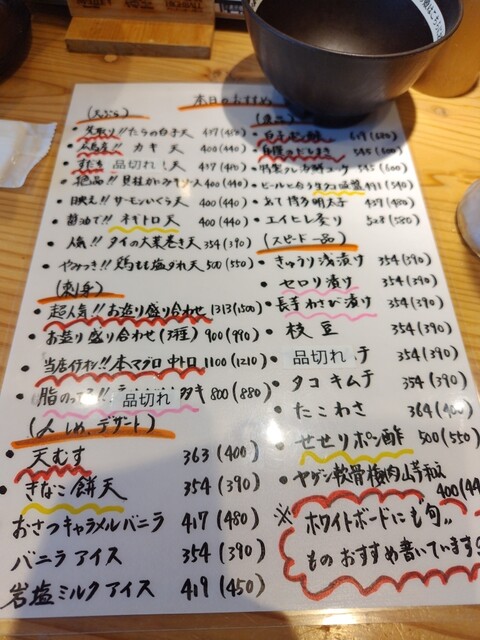 本日のおすすめ
(天ぷら)
先取り!! たらの白子天
カキ天 400(440)
品切れ 天
貝柱かぶりつき天 400(440)
サーモンいくら天 400(440)
醤油で!! ネギトロ天 400(440)
人気!! タイの大葉巻き天 354(390)
やみつき!! 鶏もも塩ダレ天 500(550)
(刺身)
超人気!! お造り盛り合わせ 1313(1500)
お造り盛り合わせ(3種) 900(990)
当店イチオシ!! 本マグロ中トロ 1100(1210)
脂のってる!! 品切れ タタキ 800(880)
(〆めし、デザート)
天むす 363(400)
きなこ餅天 354(390)
おさつキャラメルバニラ 417(480)
バニラアイス 354(390)
岩塩ミルクアイス 419(450)
白子ポン酢
あて博多明太子
エイヒレ炙り 528(580)
(スピード一品)
きゅうり浅漬け 354(390)
セロリ漬け 354(390)
長芋わさび漬け 354(390)
枝豆 354(390)
品切れ チ 354(390)
タコキムチ 354(390)
たこわさ 364(400)
せせりポン酢 500(550)
ヤゲン軟骨梅肉山芋和え 400(440
※ホワイトボードにも旬〃
ものおすすめ書いています